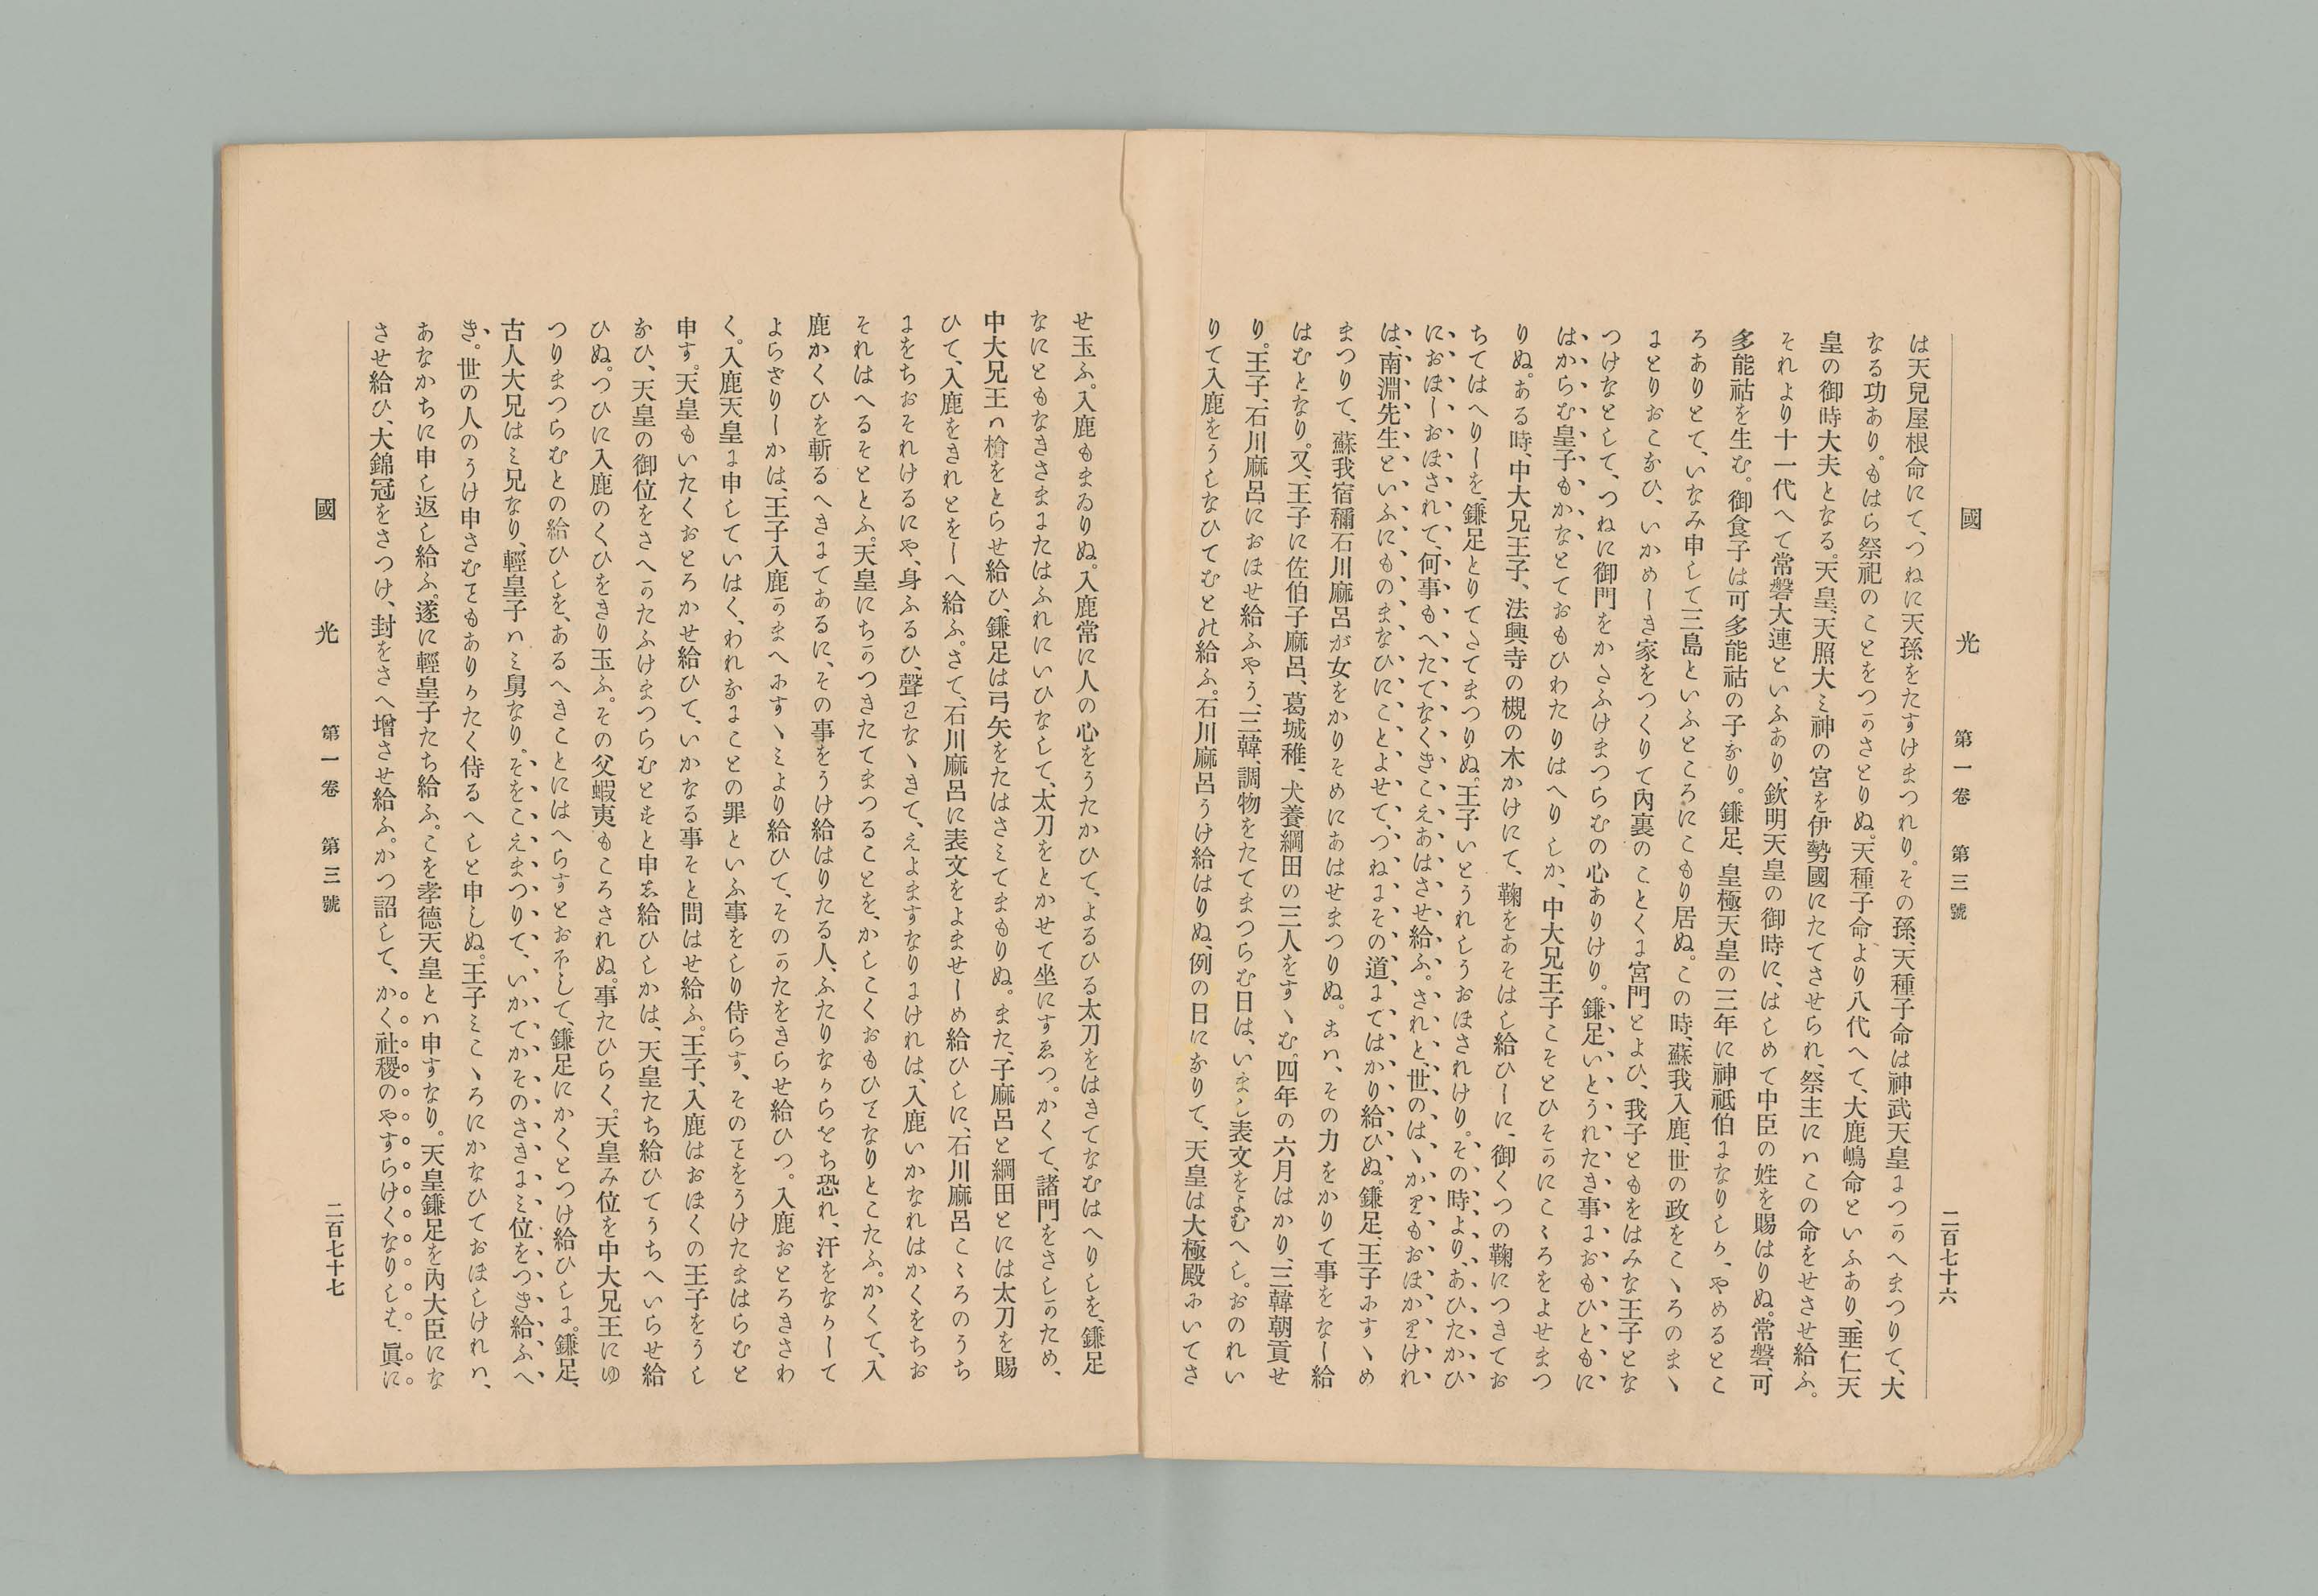 國光 第一卷 第三號 二百七十六
は天兒屋根命にて、つねに天孫をたすけまつれり。その孫、天種子命は神武天皇につかへまつりて、大
なる功あり。もはら祭祀のことをつかさとりぬ。天種子命より八代へて、大鹿嶋命といふあり、垂仁天
皇の御時大夫となる。天皇、天照大ミ神の宮を伊勢國にたてさせられ、祭主にハこの命をせさせ給ふ。
それより十一代へて常磐大連といふあり、欽明天皇の御時に、はしめて中臣の姓を賜はりぬ。常磐、可
多能祜を生む。御食子は可多能祜の子なり。鎌足、皇極天皇の三年に神祇伯になりしか、やめるとこ
ろありとて、いなみ申して三島といふところにこもり居ぬ。この時、蘇我入鹿、世の政をこゝろのまゝ
にとりおこなひ、いかめしき家をつくりて內裏のことくに宮門とよひ、我子ともをはみな王子とな
つけなとして、つねに御門をかたふけまつらむの心ありけり。鎌足いとうれたき事におもひともに
はからむ皇子もかなとておもひわたりはへりしか、中大兄王子こそとひそかにこゝろをよせまつ
りぬ。ある時、中大兄王子、法興寺の槻の木かけにて、鞠をあそはし給ひしに、御くつの鞠につきてお
ちてはへりしを、鎌足とりてさてまつりぬ。王子いとうれしうおほされけり。その時より、あひたかひ
におほしおほされて、何事もへたてなくきこえあはさせ給ふ。されと世のは、かりもおほかりけれ
は、南淵先生といふにものまなひにことよせて、つねにその道にてはかり給ひぬ。鎌足、王子にすゝめ
まつりて、蘇我宿禰石川麻呂が女をかりそめにあはせまつりぬ。こハ、その力をかりて事をなし給
はむとなり。又、王子に佐伯子麻呂、葛城稚、犬養綱田の三人をすゝむ。四年の六月はかり、三韓朝貢せ
り。王子、石川麻呂におほせ給ふやう、三韓、調物をたてまつらむ日は、いまし表文をよむへし。おのれい
りて入鹿をうしなひてむとの給ふ。石川麻呂うけ給はりぬ、例の日になりて、天皇は大極殿にいてさ
せ玉ふ。入鹿もまゐりぬ。入鹿常に人の心をうたかひて、よるひる太刀をはきてなむはへりしを、鎌足
なにともなきさまにたはふれにいひなして、太刀をとかせて坐にすゑつ。かくて、諸門をさしかため、
中大兄王ハ槍をとらせ給ひ、鎌足は弓矢をたはさミてまもりぬ。また、子麻呂と綱田とには太刀を賜
ひて、入鹿をきれとをしへ給ふ。さて、石川麻呂に表文をよませしめ給ひしに、石川麻呂こゝろのうち
にをちおそれけるにや、身ふるひ、聲わなゝきて、えよますなりにけれは、入鹿いかなれはかくをちお
それはへるそととふ。天皇にちかつきたてまつることを、かしこくおもひてなりとこたふ。かくて、入
鹿かくひを斬るへきにてあるに、その事をうけ給はりたる人、ふたりなからをち恐れ、汗をなかして
よらさりしかは、王子入鹿かまへにすゝミより給ひて、そのかたをきらせ給ひつ。入鹿おとろきさわ
く。入鹿天皇に申していはく、われなにことの罪といふ事をしり侍らす、そのよをうけたまはらむと
申す。天皇もいたくおとろかせ給ひて、いかなる事そと問はせ給ふ。王子、入鹿はおほくの王子をうし
なひ、天皇の御位をさへかたふけまつらむとすと申え給ひしかは、天皇たち給ひてうちへいらせ給
ひぬ。つひに入鹿のくひをきり玉ふ。その父蝦夷もころされぬ。事たひらく。天皇み位を中大兄王にゆ
つりまつらむとの給ひしを、あるへきことにはへらすとおほして、鎌足にかくとつけ給ひしに。鎌足、
古人大兄はミ兄なり、輕皇子ハミ舅なり。そをこえまつりて、いかてかそのさきにミ位をつき給ふへ
き。世の人のうけ申さむこともありかたく侍るへしと申しぬ。王子ミこゝろにかなひておほしけれハ、
あなかちに申し返し給ふ。遂に輕皇子たち給ふ。こを孝德天皇とハ申すなり。天皇鎌足を內大臣にな
させ給ひ、大錦冠をさつけ、封をさへ增させ給ふ。かつ詔して、かく社稷のやすらけくなりしも、眞に
國光 第一卷 第三號 二百七十七